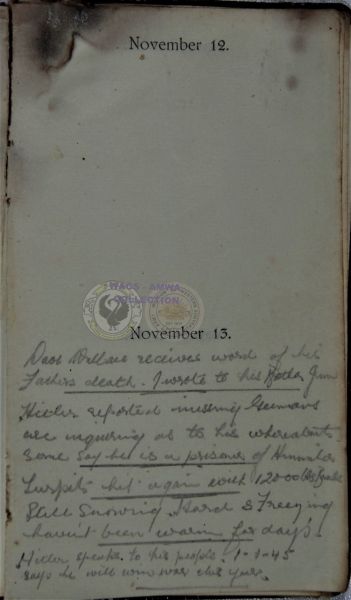 November 12.
WAGS - AMWA
COLLECTION
November 13.
receives word of his
Fathers death. I wrote to his Mother Jim
Hitler reported missing Germans
are inquiring as to his whereabouts
some say he is a prisoner of Himmler
hit again with 12000 lbs
Still Snowing. Hard & Freezing
havint been warm for days.
Hitler speaks to his people 1-1-45
says he will win war this year.